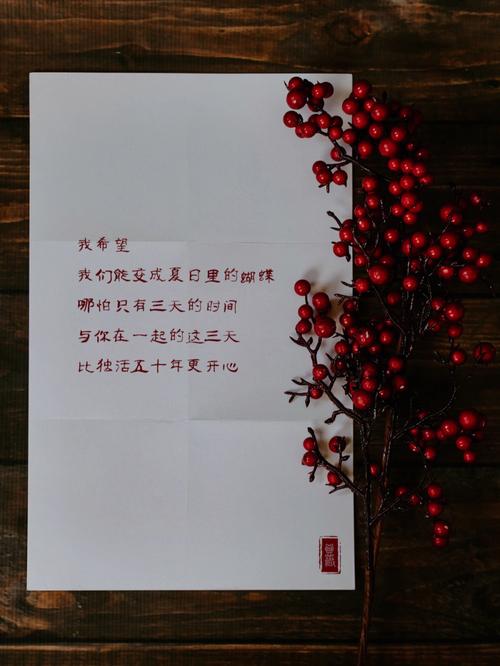 我希望
我们能变成夏日里的蝴蝶
哪怕只有三天的时间
与你在一起的这三天
比独活五十年更开心